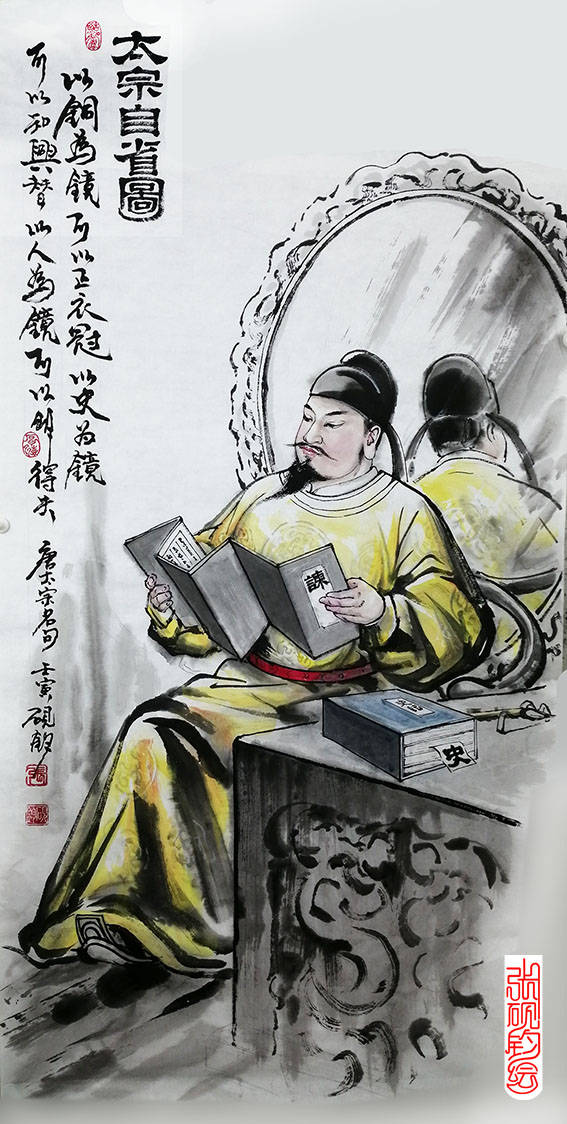 太宗自省圖
以銅為鏡可以正衣冠以史为鏡
可以知興替以人為鏡可以明得失 唐太宗名句 壬寅 硯鈞
諫
史
张砚钧绘